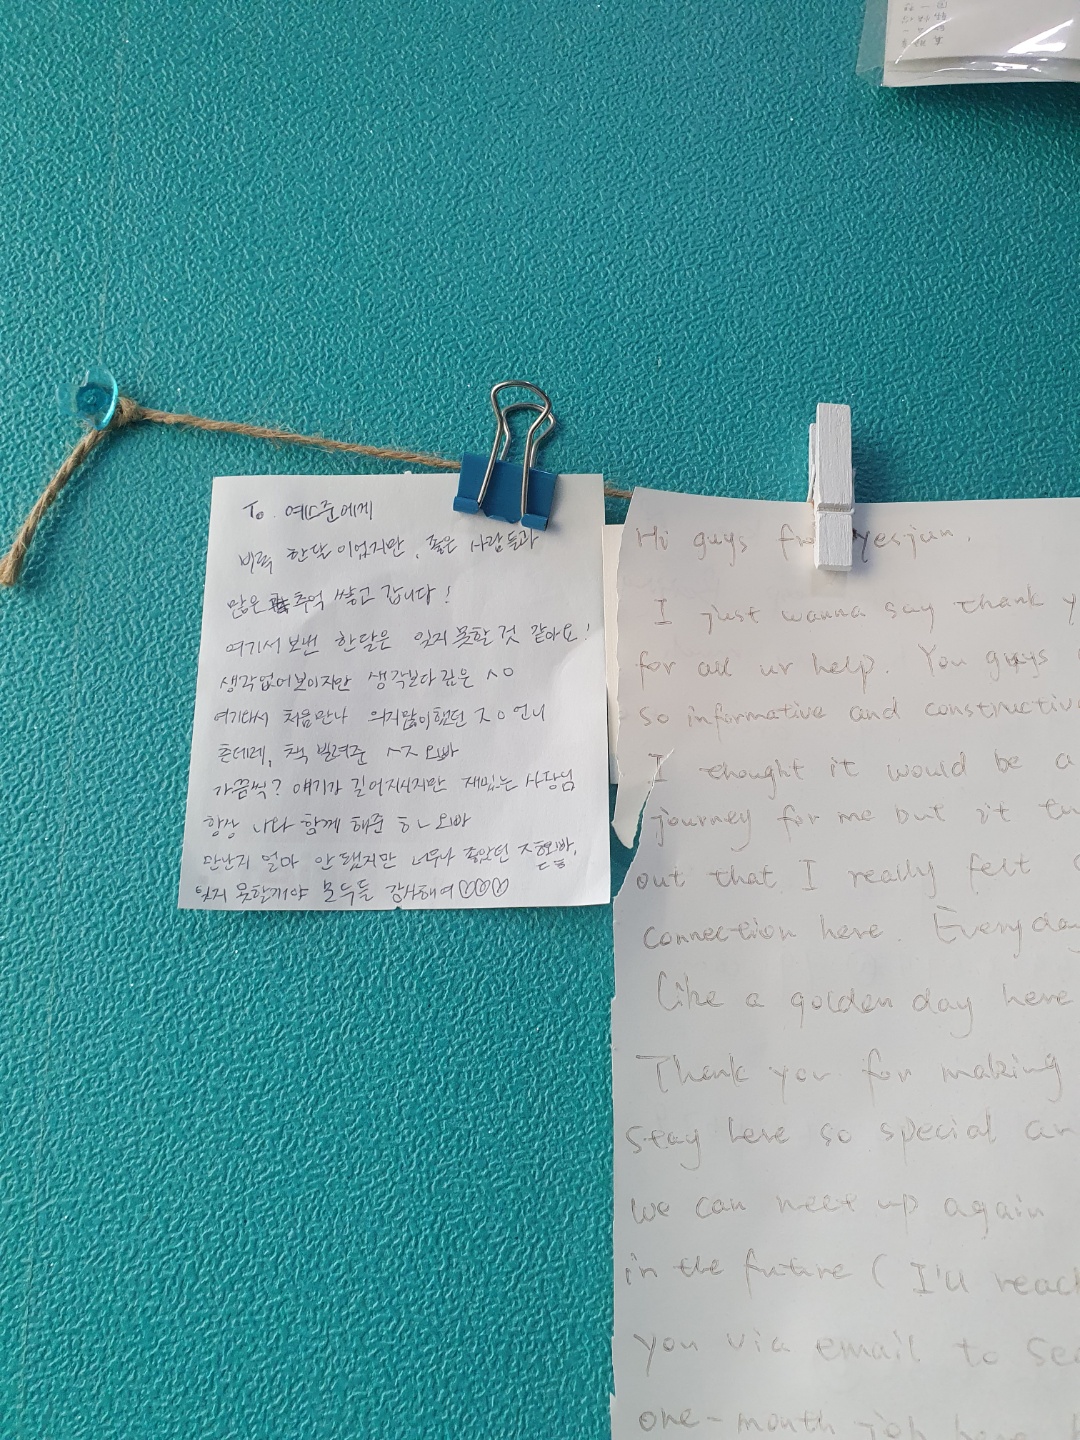 To. 예스준에게
비록 한달이었지만, 좋은 사람들과
많은 추억 쌓고 갑니다!
여기서 보낸 한달은 잊지 못할 것 같아요!
생각없어보이지만 생각보다 깊은 ㅅㅇ
여기와서 처음만나 의지많이했던 ㅈㅇ언니
츤데레, 책 빌려준 ㅅㅈ오빠
가끔씩? 얘기가 길어지시지만 재밌는 사장님
항상 나와 함께 해준 ㅎㄴ오빠
만난지 얼마 안 됐지만 너무나 좋았던
잊지 못할거야 모두들 감사해여♡♡♡
Hi guys from yesjun.
I just wanna say thank
for all ur help. You guys
so informative and constructive
I thought it would be a
journey for me but it
out that I really felt
connection here. Everyday
like a golden day here
Thank you for making
stay here so special
we can meet up again
in the future ( I'll reach
you via email to
one-month job here